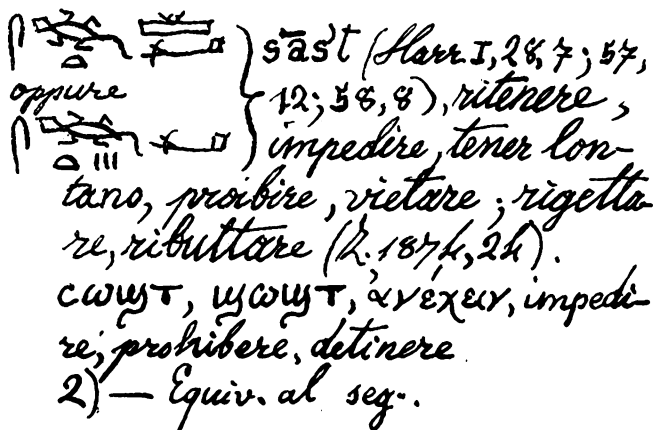 sašt (Harr. I, 28, 7; 57,
oppure
12; 58, 8), ritenere,
impedire, tener lon-
tano, proibire, vietare; rigetta-
re, ributtare (Z. 1874, 24).
ⲥⲱϣⲧ, ϣⲱϣⲧ, ἀνέχειν, impedi-
re, prohibere, detinere
2) — Equiv. al seg-.